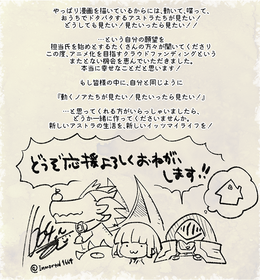 やっぱり漫画を描いているからには、動いて、喋って、
おうちでドタバタするアストラたちが見たい!
どうしても見たい!見たいったら見たい!!
…という自分の願望を
担当氏を始めとするたくさんの方々が聞いてくださり
この度、アニメ化を目指すクラウドファンディングという
またとない機会を恵んでいただきました。
本当に幸せなことだと思います!
もし皆様の中に、自分と同じように
『動くノアたちが見たい!見たいったら見たい!』
…と思ってくれる方がいらっしゃいましたら、
どうか一緒に作ってくださいませんか。
新しいアストラの生活を、新しいイッツマイライフを!
どうぞ応援よろしくおねがい
します!!